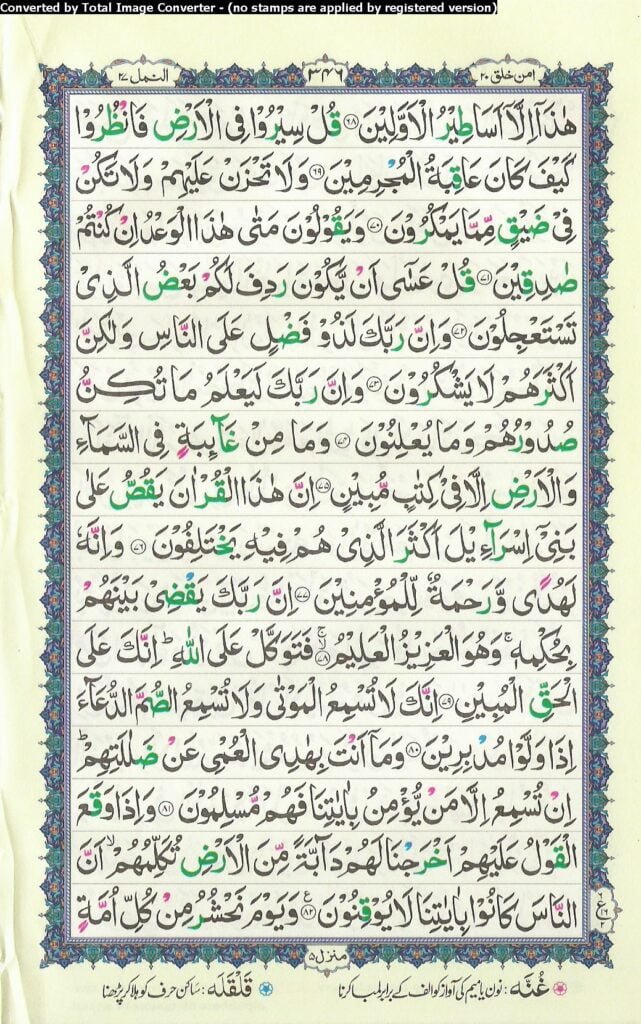 Converted by Total Image Converter - (no stamps are applied by registered version)
امن خلق ۲۰
۳۴۶
النمل ۲۷
هٰذَاۤ اِلَّاۤ اَسَاطِيْرُ الْاَوَّلِيْنَ ۶۸ قُلْ سِيْرُوْا فِى الْاَرْضِ فَانْظُرُوْا
كَيْفَ كَانَ عَاقِبَةُ الْمُجْرِمِيْنَ ۶۹ وَلَا تَحْزَنْ عَلَيْهِمْ وَلَا تَكُنْ
فِىْ ضَيْقٍ مِّمَّا يَمْكُرُوْنَ ۷۰ وَيَقُوْلُوْنَ مَتٰى هٰذَا الْوَعْدُ اِنْ كُنْتُمْ
صٰدِقِيْنَ ۷۱ قُلْ عَسٰۤى اَنْ يَّكُوْنَ رَدِفَ لَكُمْ بَعْضُ الَّذِىْ
تَسْتَعْجِلُوْنَ ۷۲ وَاِنَّ رَبَّكَ لَذُوْ فَضْلٍ عَلَى النَّاسِ وَلٰكِنَّ
اَكْثَرَهُمْ لَا يَشْكُرُوْنَ ۷۳ وَاِنَّ رَبَّكَ لَيَعْلَمُ مَا تُكِنُّ
صُدُوْرُهُمْ وَمَا يُعْلِنُوْنَ ۷۴ وَمَا مِنْ غَآئِبَةٍ فِى السَّمَآءِ
وَالْاَرْضِ اِلَّا فِىْ كِتٰبٍ مُّبِيْنٍ ۷۵ اِنَّ هٰذَا الْقُرْاٰنَ يَقُصُّ عَلٰى
بَنِىْۤ اِسْرَآءِيْلَ اَكْثَرَ الَّذِىْ هُمْ فِيْهِ يَخْتَلِفُوْنَ ۷۶ وَاِنَّهٗ
لَهُدًى وَّرَحْمَةٌ لِّلْمُؤْمِنِيْنَ ۷۷ اِنَّ رَبَّكَ يَقْضِىْ بَيْنَهُمْ
بِحُكْمِهٖ ۚ وَهُوَ الْعَزِيْزُ الْعَلِيْمُ ۷۸ فَتَوَكَّلْ عَلَى اللّٰهِ ؕ اِنَّكَ عَلَى
الْحَقِّ الْمُبِيْنِ ۷۹ اِنَّكَ لَا تُسْمِعُ الْمَوْتٰى وَلَا تُسْمِعُ الصُّمَّ الدُّعَآءَ
اِذَا وَلَّوْا مُدْبِرِيْنَ ۸۰ وَمَاۤ اَنْتَ بِهٰدِى الْعُمْىِ عَنْ ضَلٰلَتِهِمْ ؕ
اِنْ تُسْمِعُ اِلَّا مَنْ يُّؤْمِنُ بِاٰيٰتِنَا فَهُمْ مُّسْلِمُوْنَ ۸۱ وَاِذَا وَقَعَ
الْقَوْلُ عَلَيْهِمْ اَخْرَجْنَا لَهُمْ دَآبَّةً مِّنَ الْاَرْضِ تُكَلِّمُهُمْ ۙ اَنَّ
النَّاسَ كَانُوْا بِاٰيٰتِنَا لَا يُوْقِنُوْنَ ۸۲ وَيَوْمَ نَحْشُرُ مِنْ كُلِّ اُمَّةٍ
منزل ۵
غُنَّه : نون یا میم کی آواز کو الف کے برابر لمبا کرنا
قَلْقَلَه : ساکن حرف کو ہلا کر پڑھنا